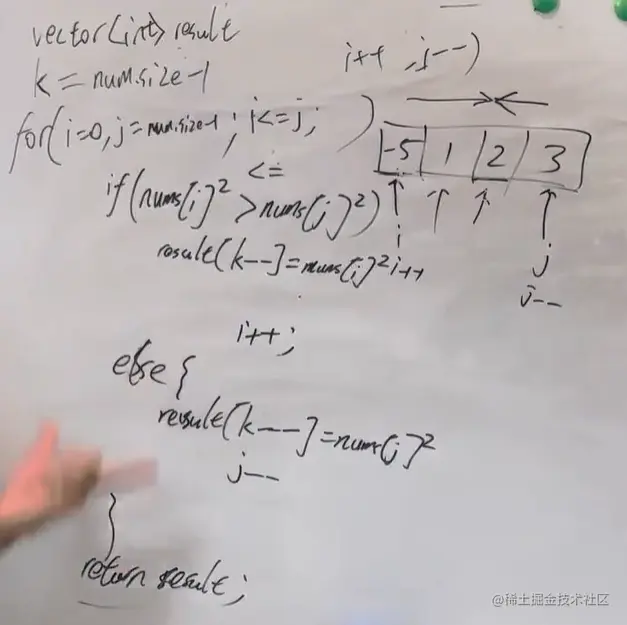 vector<int> result
k = num.size-1
i++ , j--)
for(i=0, j=num.size-1; i<=j; )
-5 1 2 3
<=
if(nums[i]² > nums[j]²)
result[k--]=nums[i]² i++
i
j
j--
i++;
else {
result[k--]=nums[j]²
j--
}
return result;
@稀土掘金技术社区